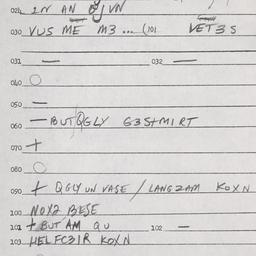 02L IN AN VN
030 VUS ME M3 ... (101 VET3S
031 — 032 —
040 O
050 —
060 — BUTQGLY G3StMIRT
070 +
080 O
090 + QGLY UN VASE / LANG2AM KOXN
100 NOX2 BESE
101 + BUT AM QU 102 —
103 HELFC3IR KOXN